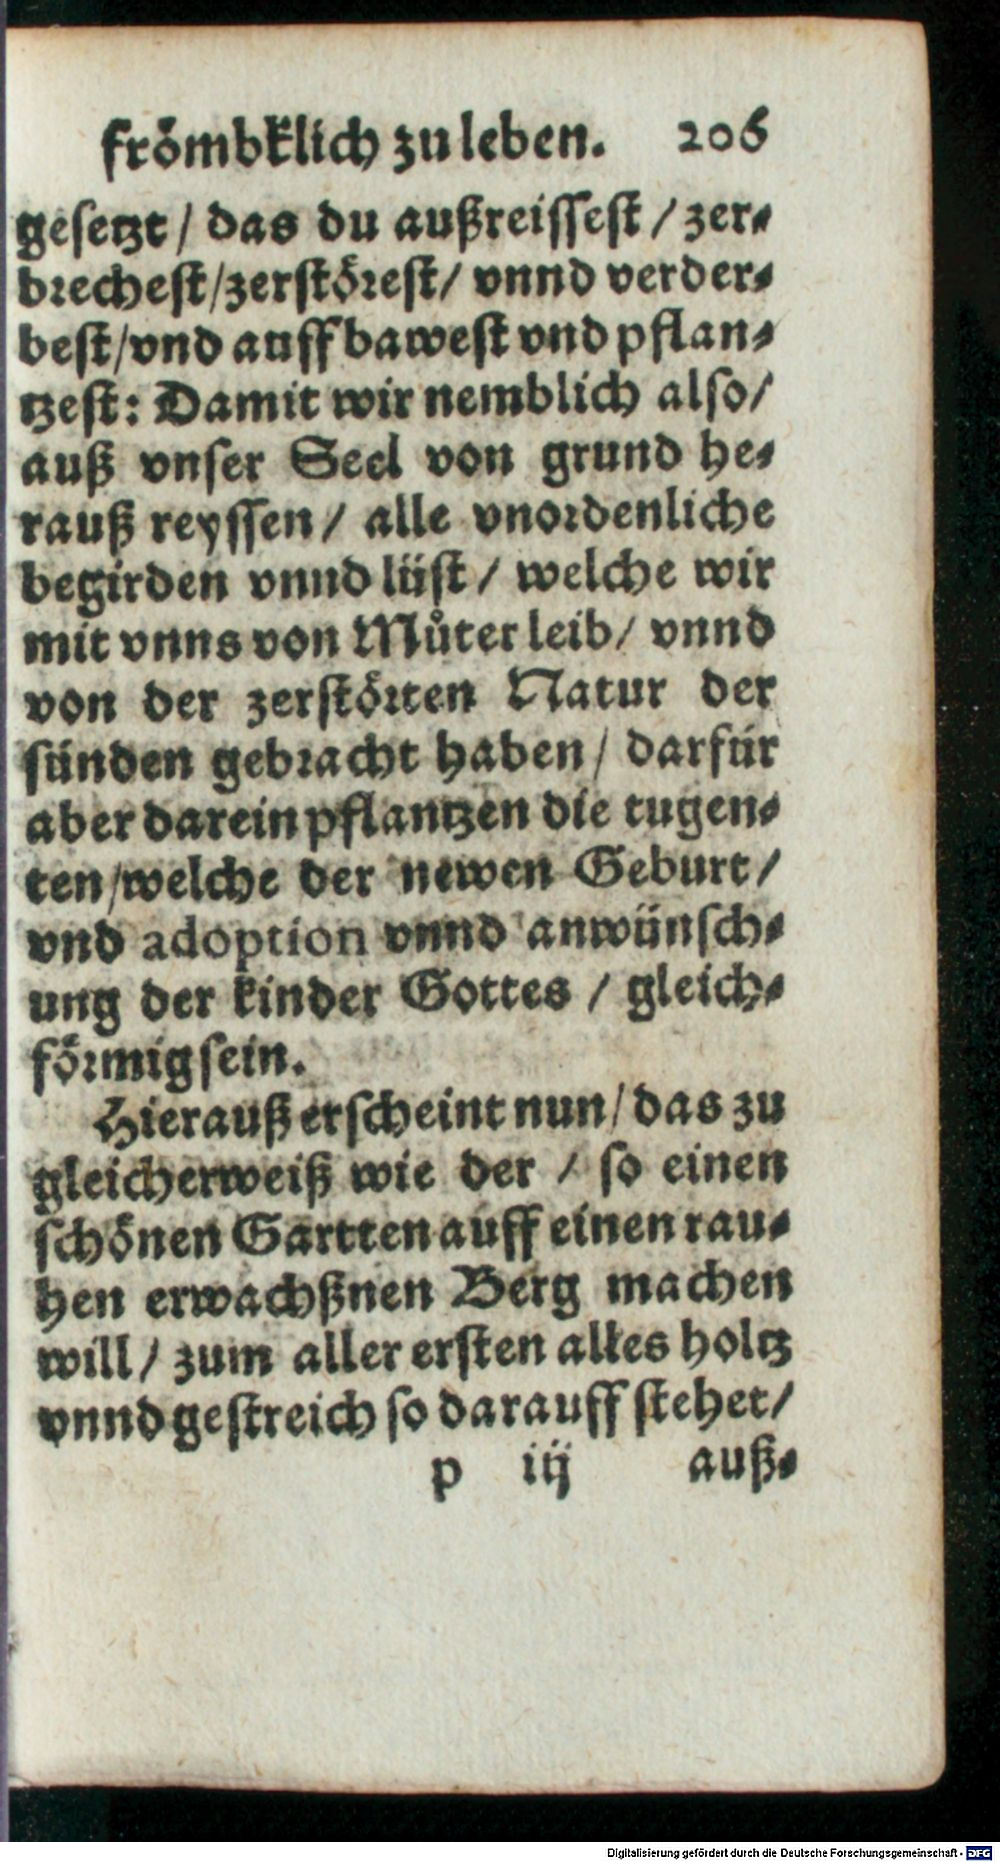 frömbklich zu leben. 206
gesetzt / das du außreissest / zer-
brechest / zerstörest / vnnd verder-
best / vnd auff bawest vnd pflan-
tzest: Damit wir nemblich also /
auß vnser Seel von grund he-
rauß reyssen / alle vnordenliche
begirden vnnd lüst / welche wir
mit vnns von Můter leib / vnnd
von der zerstörten Natur der
sünden gebracht haben / darfür
aber darein pflantzen die tugen-
ten / welche der newen Geburt /
vnd adoption vnnd anwünsch-
ung der kinder Gottes / gleich-
förmig sein.
Hierauß erscheint nun / das zu
gleicherweiß wie der / so einen
schönen Gartten auff einen rau-
hen erwachßnen Berg machen
will / zum aller ersten alles holtz
vnnd gestreich so darauff stehet /
p iij auß-
Digitalisierung gefördert durch die Deutsche Forschungsgemeinschaft - DFG